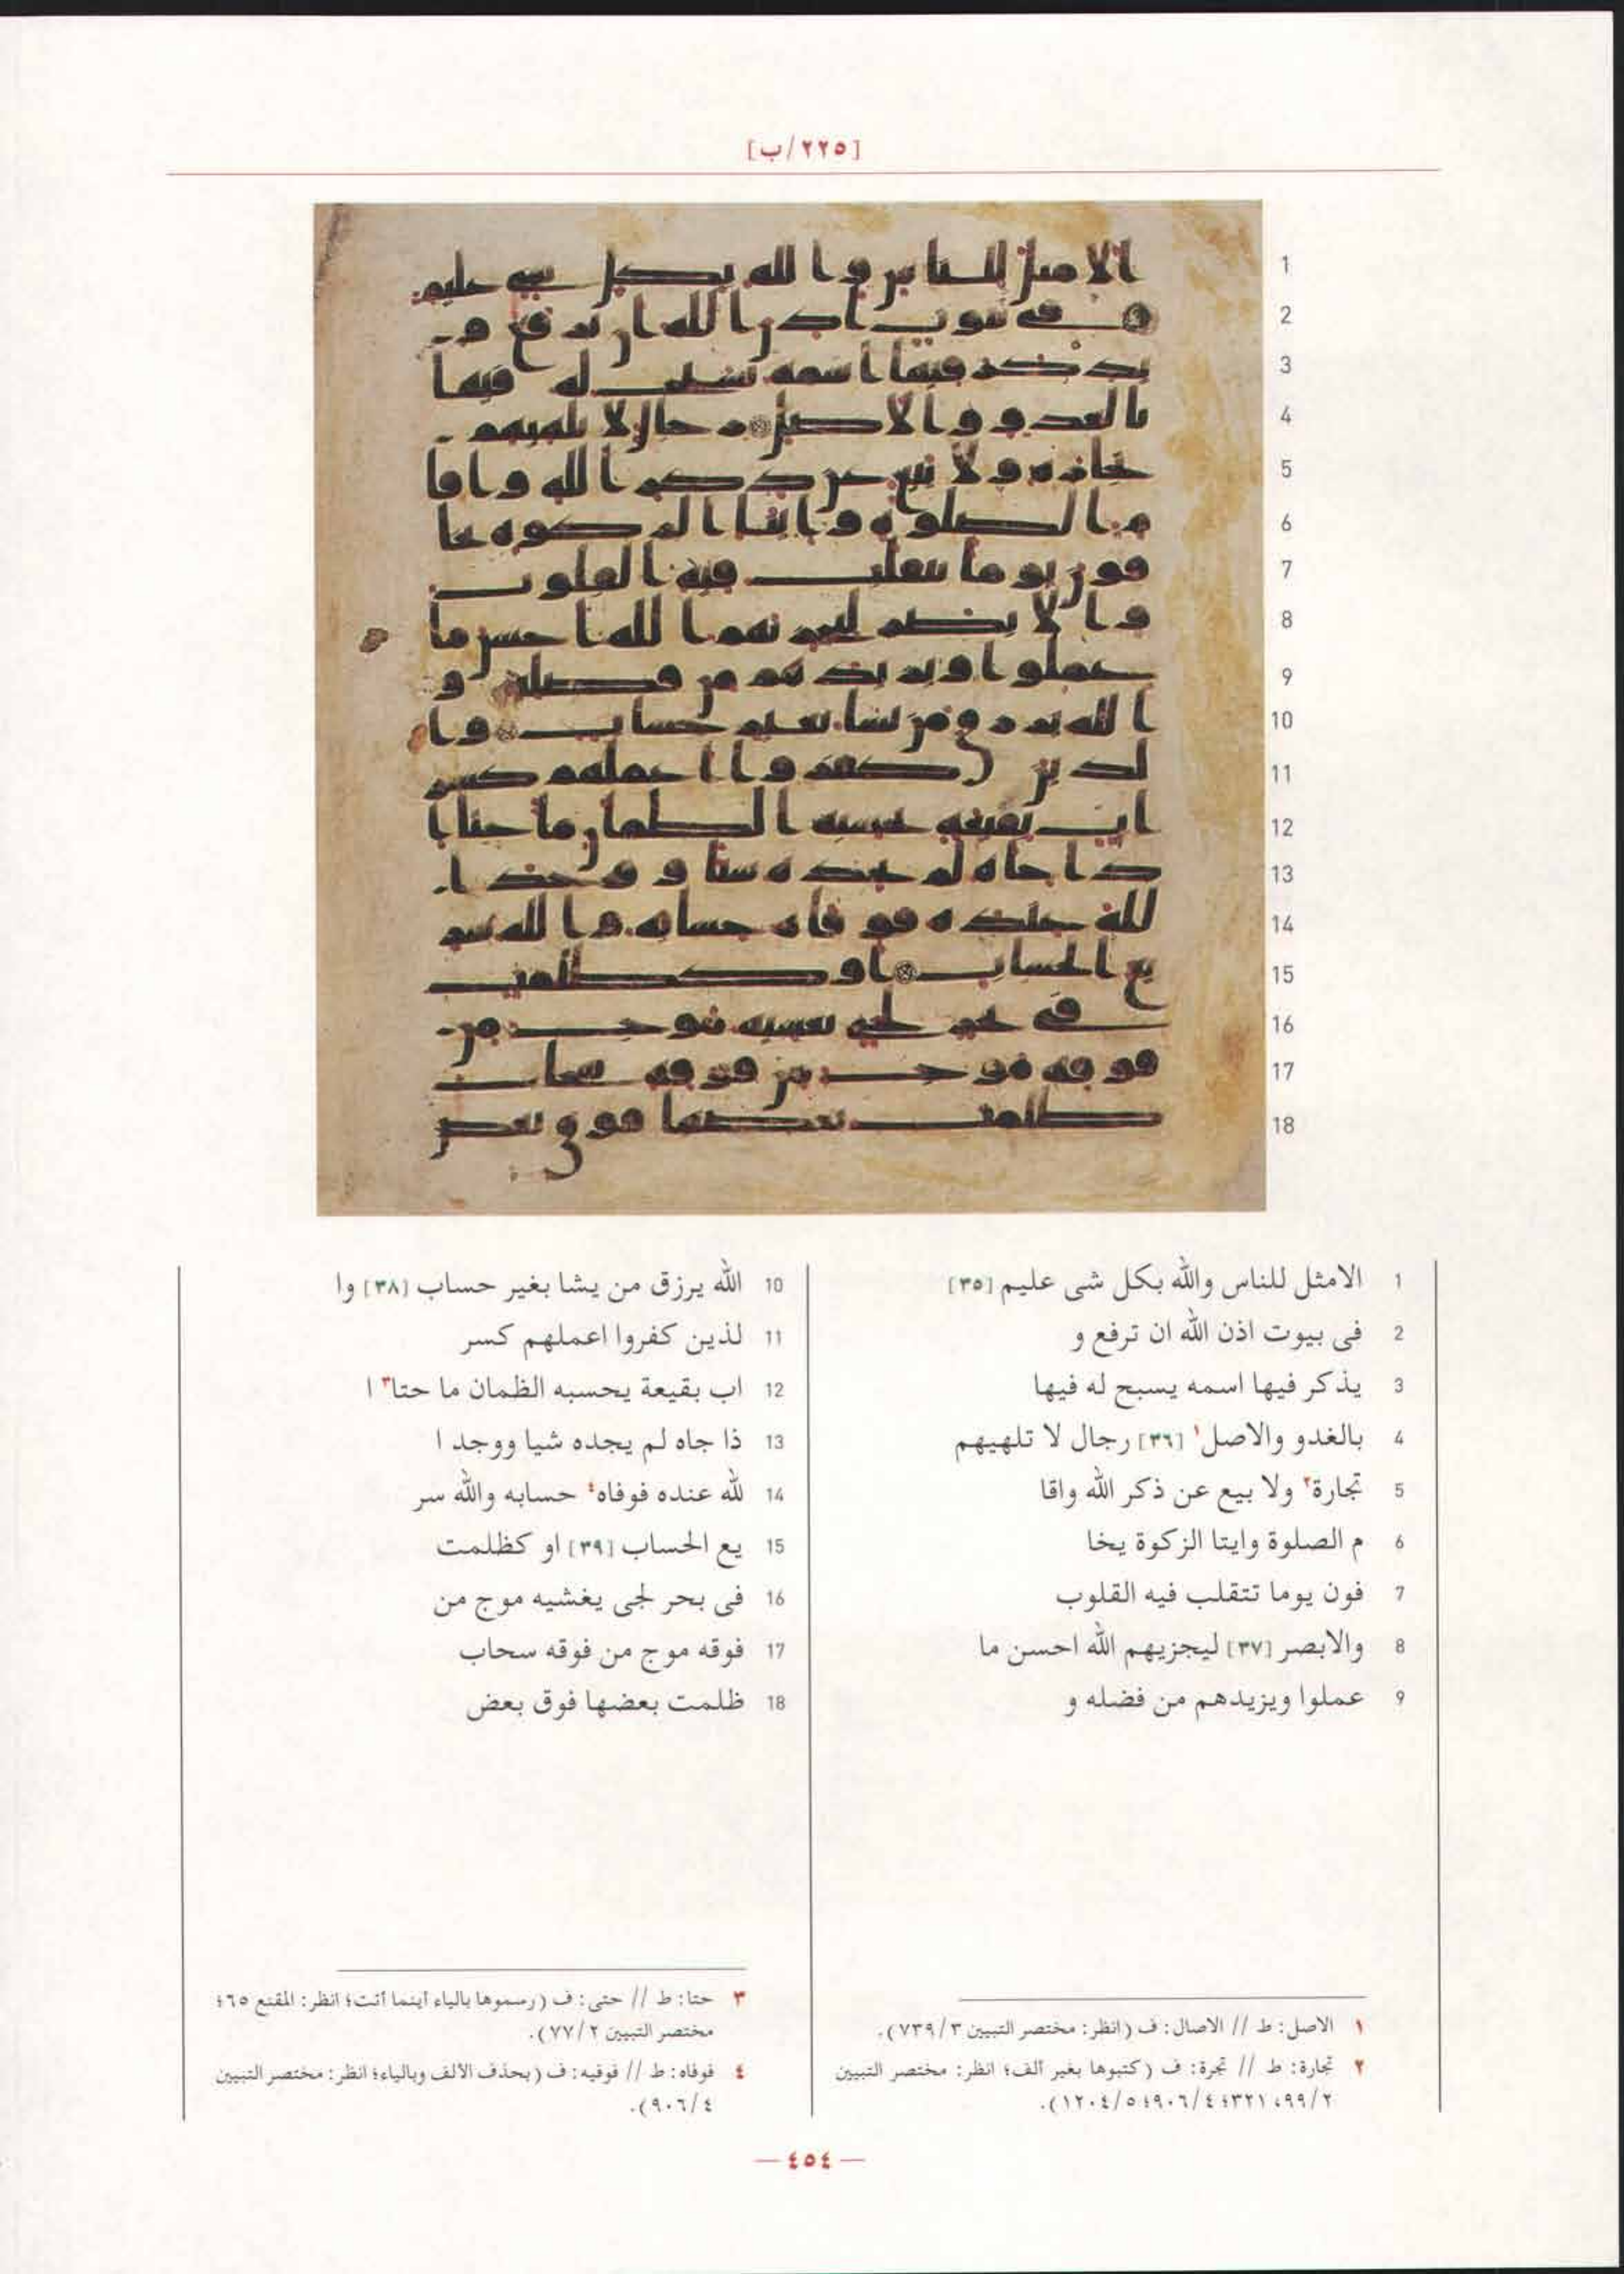 [٢٢٥/ب]
1
2
3
4
5
6
7
8
9
10
11
12
13
14
15
16
17
18
1 الامثل للناس والله بكل شى عليم [٣٥]
2 فى بيوت اذن الله ان ترفع و
3 يذكر فيها اسمه يسبح له فيها
4 بالغدو والاصل١ [٣٦] رجال لا تلهيهم
5 تجارة٢ ولا بيع عن ذكر الله واقا
6 م الصلوة وايتا الزكوة يخا
7 فون يوما تتقلب فيه القلوب
8 والابصر [٣٧] ليجزيهم الله احسن ما
9 عملوا ويزيدهم من فضله و
10 الله يرزق من يشا بغير حساب [٣٨] وا
11 لذين كفروا اعملهم كسر
12 اب بقيعة يحسبه الظمان ما حتا٣ ا
13 ذا جاه لم يجده شيا ووجد ا
14 لله عنده فوفاه٤ حسابه والله سر
15 يع الحساب [٣٩] او كظلمت
16 فى بحر لجى يغشيه موج من
17 فوقه موج من فوقه سحاب
18 ظلمت بعضها فوق بعض
١ الاصل: ط // الاصال: ف (انظر: مختصر التبيين ٧٣٩/٣).
٢ تجارة: ط // تجرة: ف (كتبوها بغير ألف؛ انظر: مختصر التبيين
٩٩/٢، ٣٢١؛ ٩٠٦/٤؛ ١٢٠٤/٥).
٣ حتا: ط // حتى: ف (رسموها بالياء أينما أتت؛ انظر: المقنع ٦٥؛
مختصر التبيين ٧٧/٢).
٤ فوفاه: ط // فوفيه: ف (بحذف الألف وبالياء؛ انظر: مختصر التبيين
٩٠٦/٤).
— ٤٥٤ —